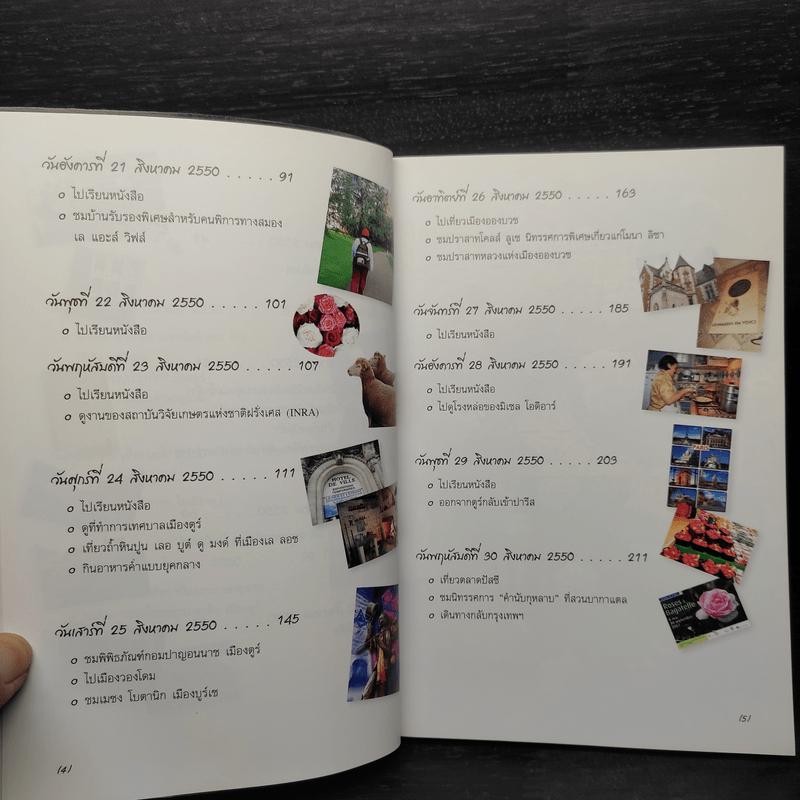 วันอังคารที่ 21 สิงหาคม 2550 . . . . . 91
o ไปเรียนหนังสือ
o ชมบ้านรับรองพิเศษสำหรับคนพิการทางสมอง
เล แอะส์ วิฟส์
วันพุธที่ 22 สิงหาคม 2550 . . . . . . 101
o ไปเรียนหนังสือ
วันพฤหัสบดีที่ 23 สิงหาคม 2550 . . . . . 107
o ไปเรียนหนังสือ
o ดูงานของสถาบันวิจัยเกษตรแห่งชาติฝรั่งเศส (INRA)
วันศุกร์ที่ 24 สิงหาคม 2550 . . . . . . 111
o ไปเรียนหนังสือ
o ดูที่ทำการเทศบาลเมืองตูร์
o เที่ยวถ้ำหินปูน เลอ บูต์ ดู มงด์ ที่เมืองเล ลอช
o กินอาหารค่ำแบบยุคกลาง
วันเสาร์ที่ 25 สิงหาคม 2550 . . . . . . 145
o ชมพิพิธภัณฑ์กอมปาญอนนาช เมืองตูร์
o ไปเมืองวองโดม
o ชมเมซง โบตานิก เมืองบูร์เช
(4)
HOTEL
DE VILLE
วันอาทิตย์ที่ 26 สิงหาคม 2550 . . . . . 163
o ไปเที่ยวเมืองอองบวซ
o ชมปราสาทโคลส์ ลูเซ นิทรรศการพิเศษเกี่ยวแก่โมนา ลิซา
o ชมปราสาทหลวงแห่งเมืองอองบวซ
วันจันทร์ที่ 27 สิงหาคม 2550 . . . . . 185
o ไปเรียนหนังสือ
วันอังคารที่ 28 สิงหาคม 2550 . . . . . 191
o ไปเรียนหนังสือ
o ไปดูโรงหล่อของมิเชล โอดิอาร์
วันพุธที่ 29 สิงหาคม 2550 . . . . . 203
o ไปเรียนหนังสือ
o ออกจากตูร์กลับเข้าปารีส
วันพฤหัสบดีที่ 30 สิงหาคม 2550 . . . . . 211
o เที่ยวตลาดปัสซี
o ชมนิทรรศการ “คำนับกุหลาบ” ที่สวนบากาแตล
o เดินทางกลับกรุงเทพฯ
(5)
LEONARDO DA VINCI
PARIS
Roses à
Bagatelle